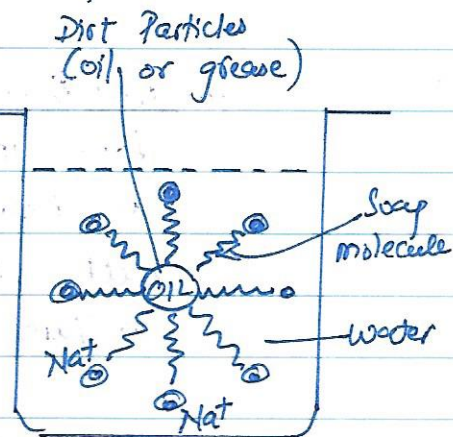 Dirt Particles
(oil or grease)
Soap
molecule
OIL
Water
Na+
Na+